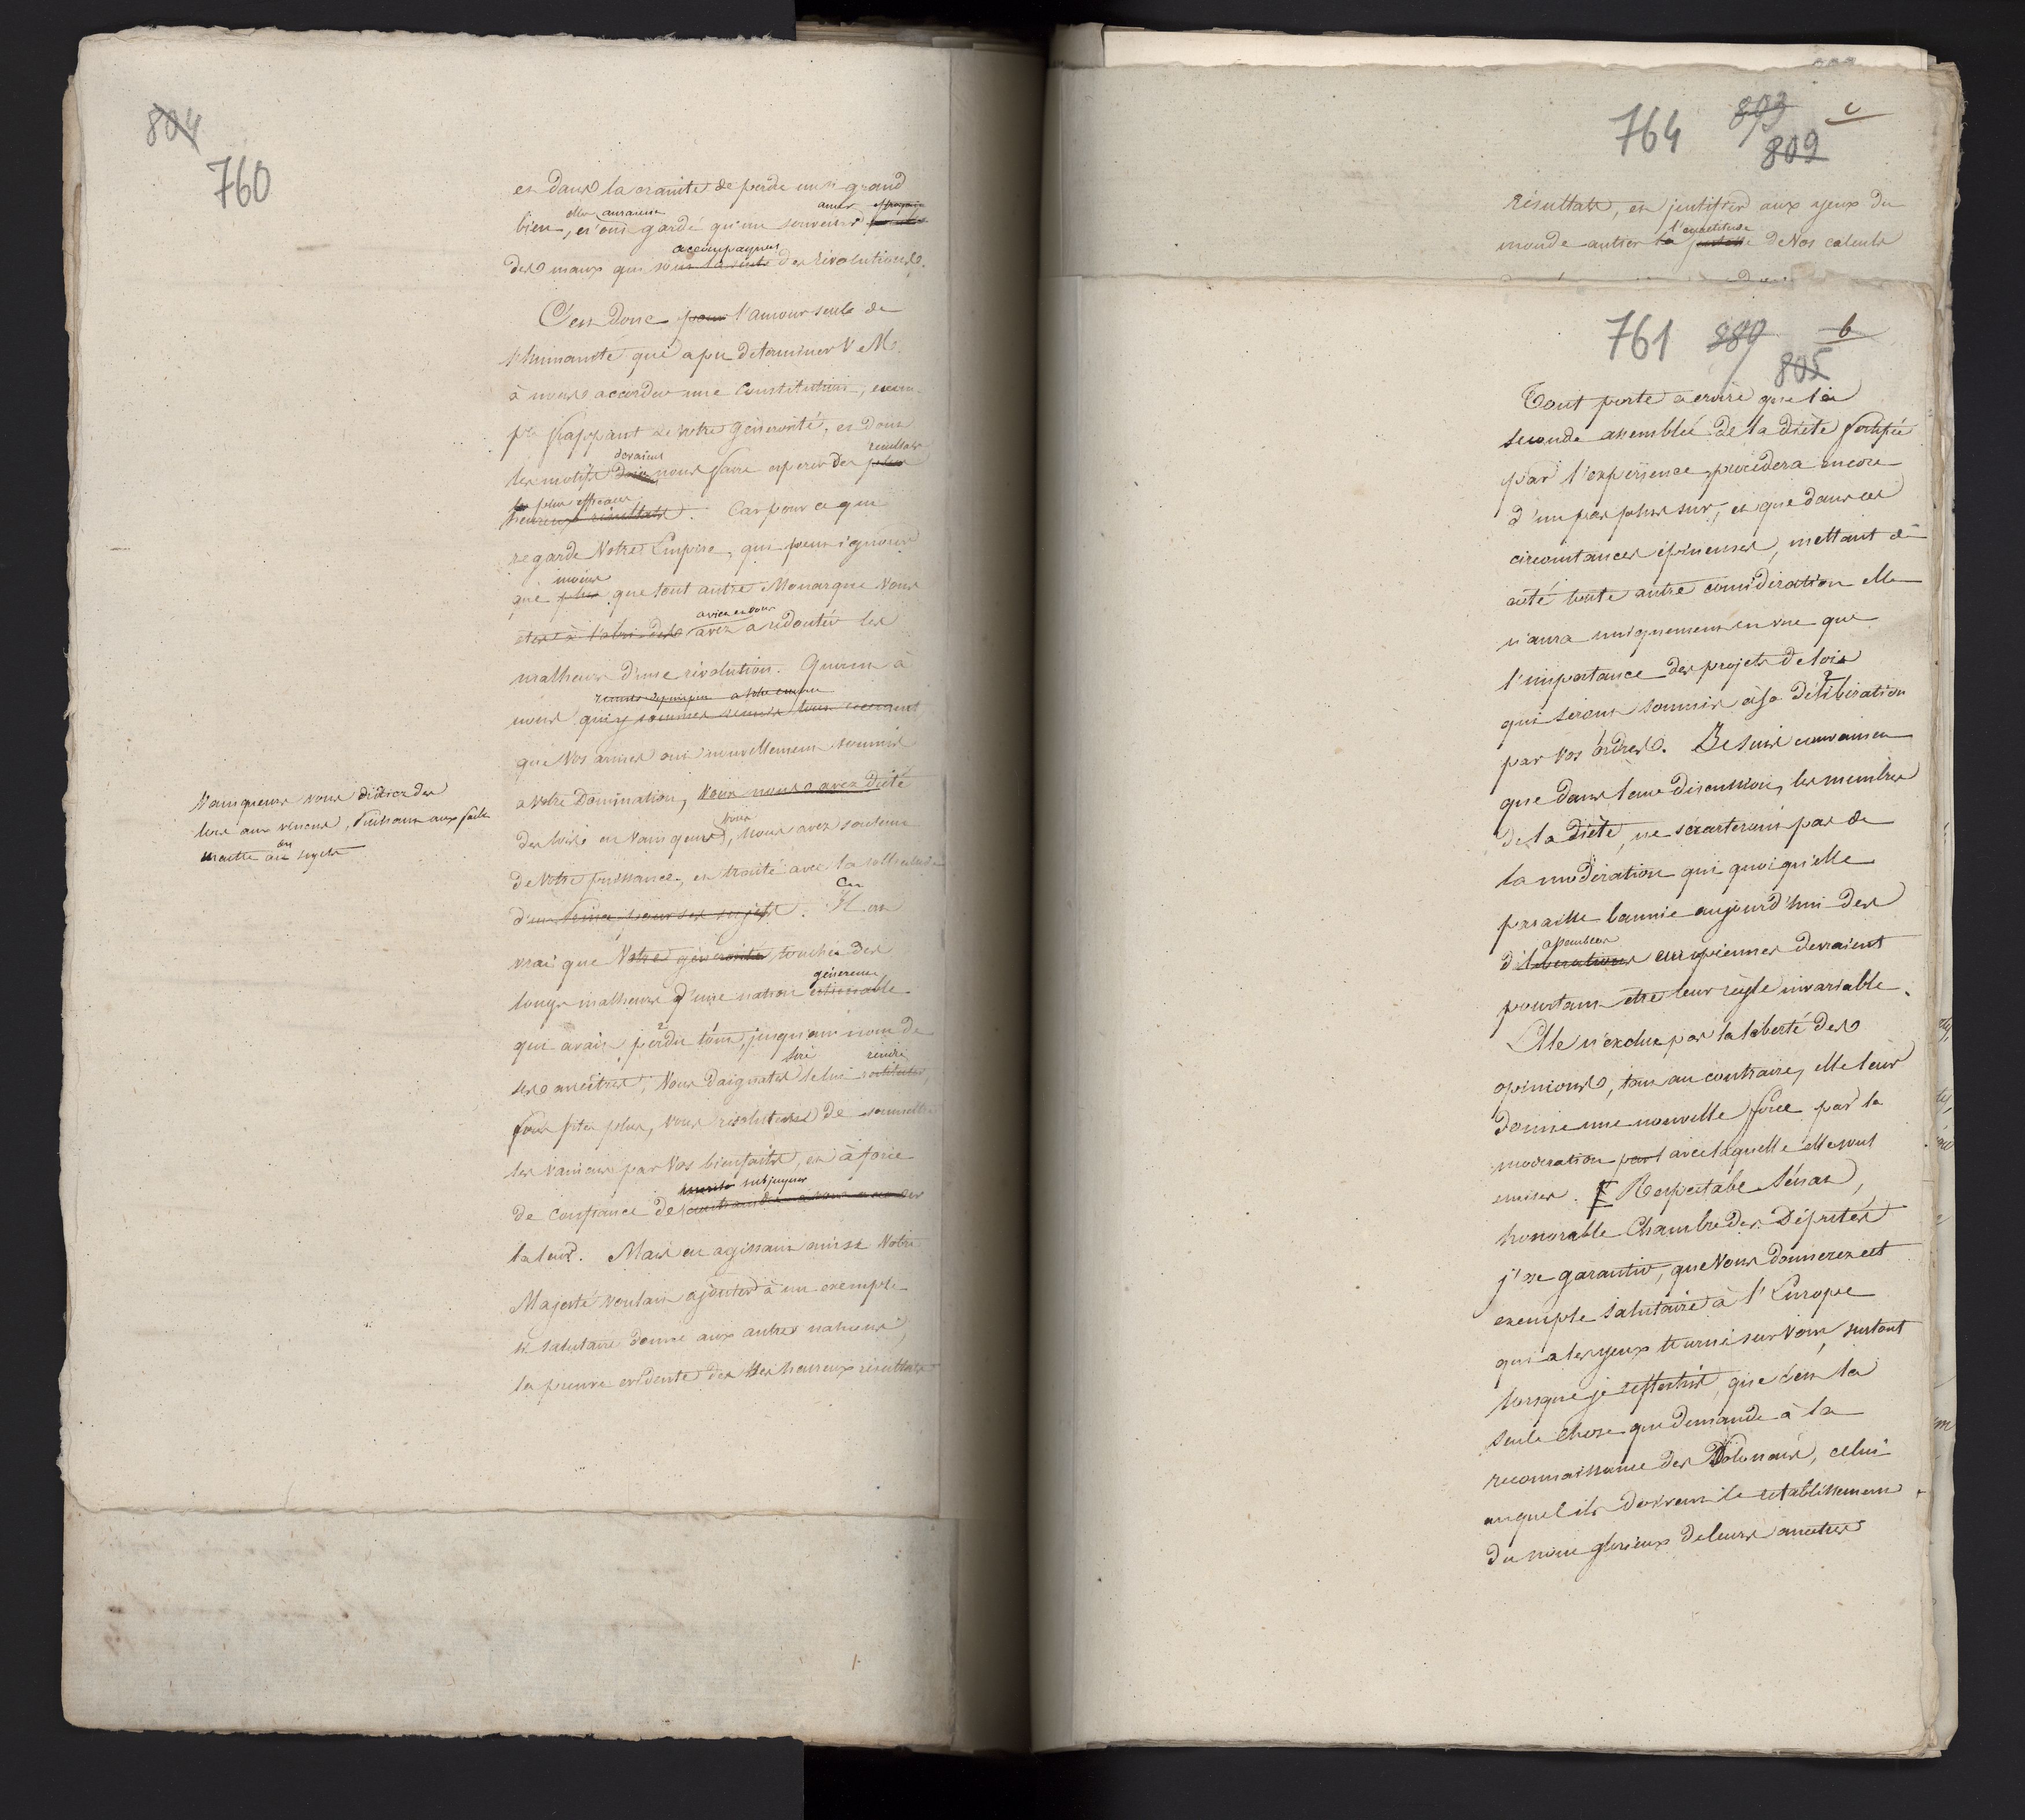 804
760
et dans la crainte de perdre un si grand
elles auraient amer
bien, n'ont gardé qu'un souvenir
accompagnent
des maux qui sont la suite des révolutions.
C'est donc pour l'amour seule de
l'humanité qui a pu determiner V. M.
à nous accorder une Constitution, exem-
ple frappant de votre générosité, et dont
devaient resultats
les motifs nous faire esperer des plus
les plus efficaces
heureux résultats. Car pour ce qui
regarde Votre Empire, qui peut ignorer
moins
que plus que tout autre Monarque Vous
êtes à l'abri des avez a redouter les
malheurs d'une révolution. Quant à
nous qui y sommes réunis
que Vos armes ont nouvellement soumis
a Votre Domination, Vous nous avez dicté
Vainqueur vous dictiez des
lois aux vaincus, Puissant aux faibles
du
maitre aux sujets
Vous
des lois en Vainqueur, nous avez soutenu
de Votre puissance, et traité avec la sollicitude
d'un Père pour ses sujets. Il est
vrai que Votre générosité touchée des
généreuse
longs malheurs d'une nation estimable
qui avait perdu tout, jusqu'au nom de
Sire rendre
ses ancêtres, Vous daignates le lui restituer,
Vous fites plus, Vous résolutes de soumettre
les vaincus par Vos bienfaits, et à force
subjuguer
de confiance de
la leur. Mais en agissant ainsi Votre
Majesté voulait ajouter à un exemple
si salutaire donné aux autres nations
la preuve evidente des heureux résultats
764 803 c
809
résultats, et justifier aux yeux du
l'exactitude
monde entier la justesse de Vos calculs
761 880 b
805
Tout porte a croire que la
seconde assemblée de la diète fortifiée
par l'expérience, procèdera encore
d'un pas plus sur, et que dans ces
circonstances épineuses, mettant de
coté toute autre considération elle
n'aura uniquement en vue que
l'importance des projets de lois
qui seront soumis à sa délibération
par Vos ordres. Je suis convaincu
que dans leur discussion, les membres
de la diète, ne s'écarteront pas de
la modération qui quoiqu'elle
paraisse bannie aujourd'hui des
assemblées
délibérations européennes devraient
pourtant être leur règle invariable.
Elle n'exclue pas la liberté des
opinions, tout au contraire, elle leur
donne une nouvelle force par la
modération part avec laquelle elle sont
emises. Respectable Sénat,
honorable Chambre des Députés
j'ose garantir, que Vous donnerez cet
exemple salutaire à l'Europe
qui a les yeux tourné sur Vous, surtout
lorsque je reflechis, que c'est la
seule chose que demande à la
reconnaissance des Polonais, celui
auquel ils doivent le retablissement
du nom glorieux de leurs ancetres